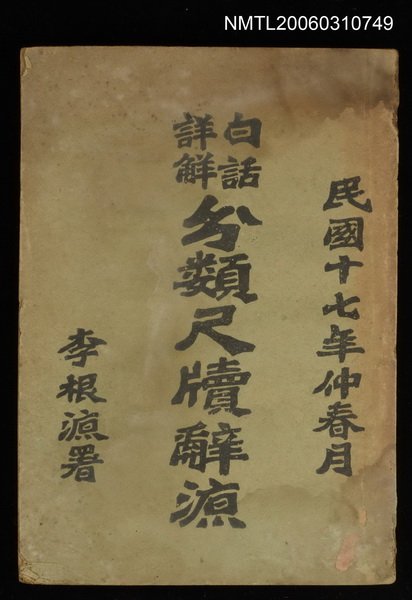 NMTL20060310749
民國十七年仲春月
白話
詳解
分類尺牘辭源
李根源署